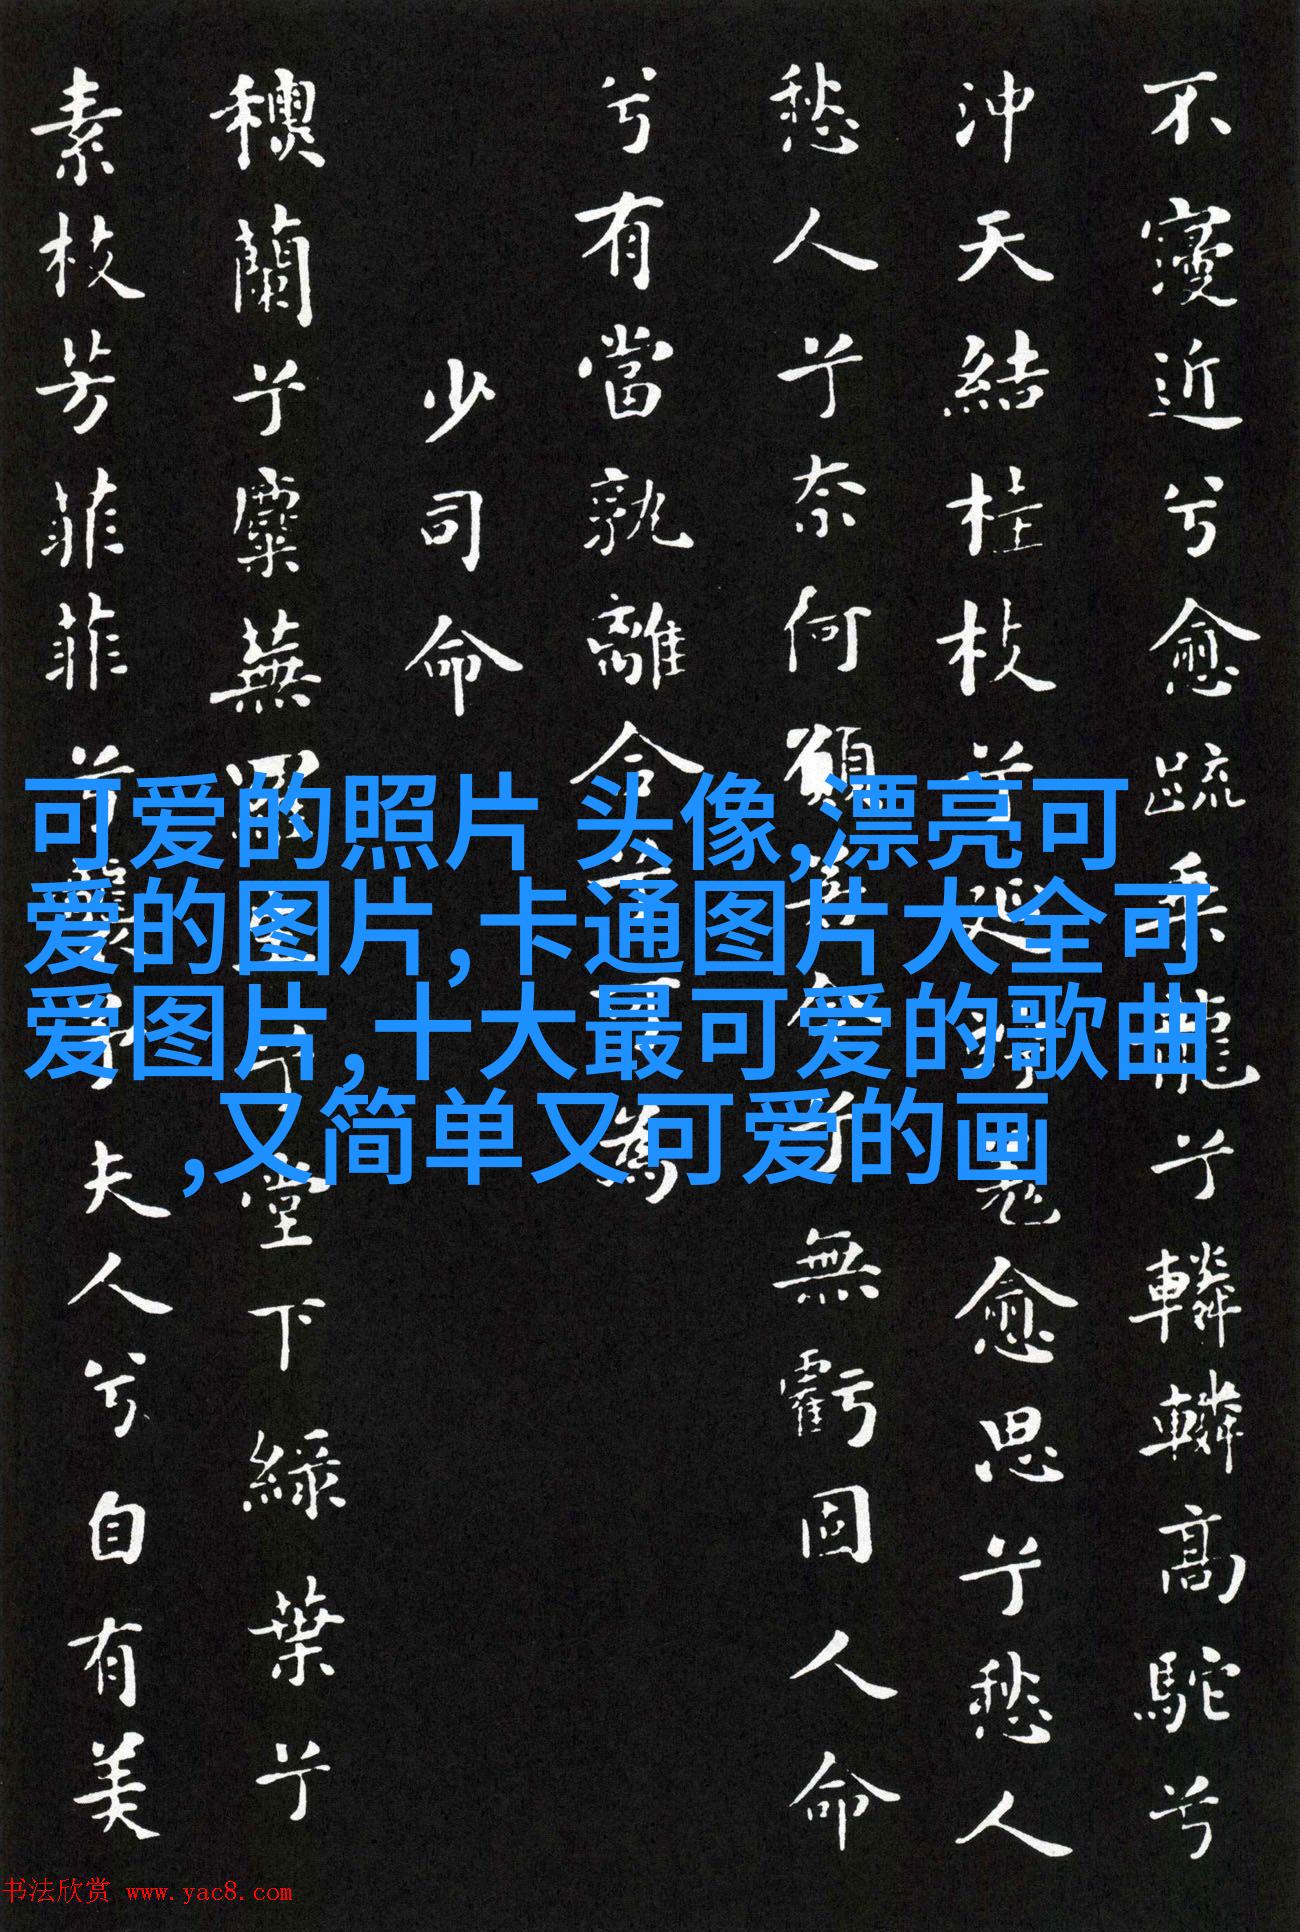 不寖近兮愈疏乘龍兮轔轔高駝兮
沖天結桂枝兮延竚羌愈思兮愁人
愁人兮奈何願若今兮無虧固人命
兮有當孰離合兮可為
少司命
蘭兮麋蕪羅生兮堂下綠葉兮
素枝芳菲菲兮襲予夫人兮自有美
可爱的照片 头像,漂亮可
爱的图片,卡通图片大全可
爱图片,十大最可爱的歌曲
,又简单又可爱的画
书法欣赏 www.yac8.com